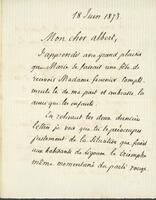 18 Juin 1873.
Mon cher Albert,
J'apprends avec grand plaisir
que Marie se faisait une fête de
recevoir Madame
de ma part et embrasse la
ainsi que les enfants.
En relisant tes deux dernières
lettres je vois que tu te préoccupes
justement de la situation que ferait
aux habitants de le triomphe
même momentané du parti rouge.